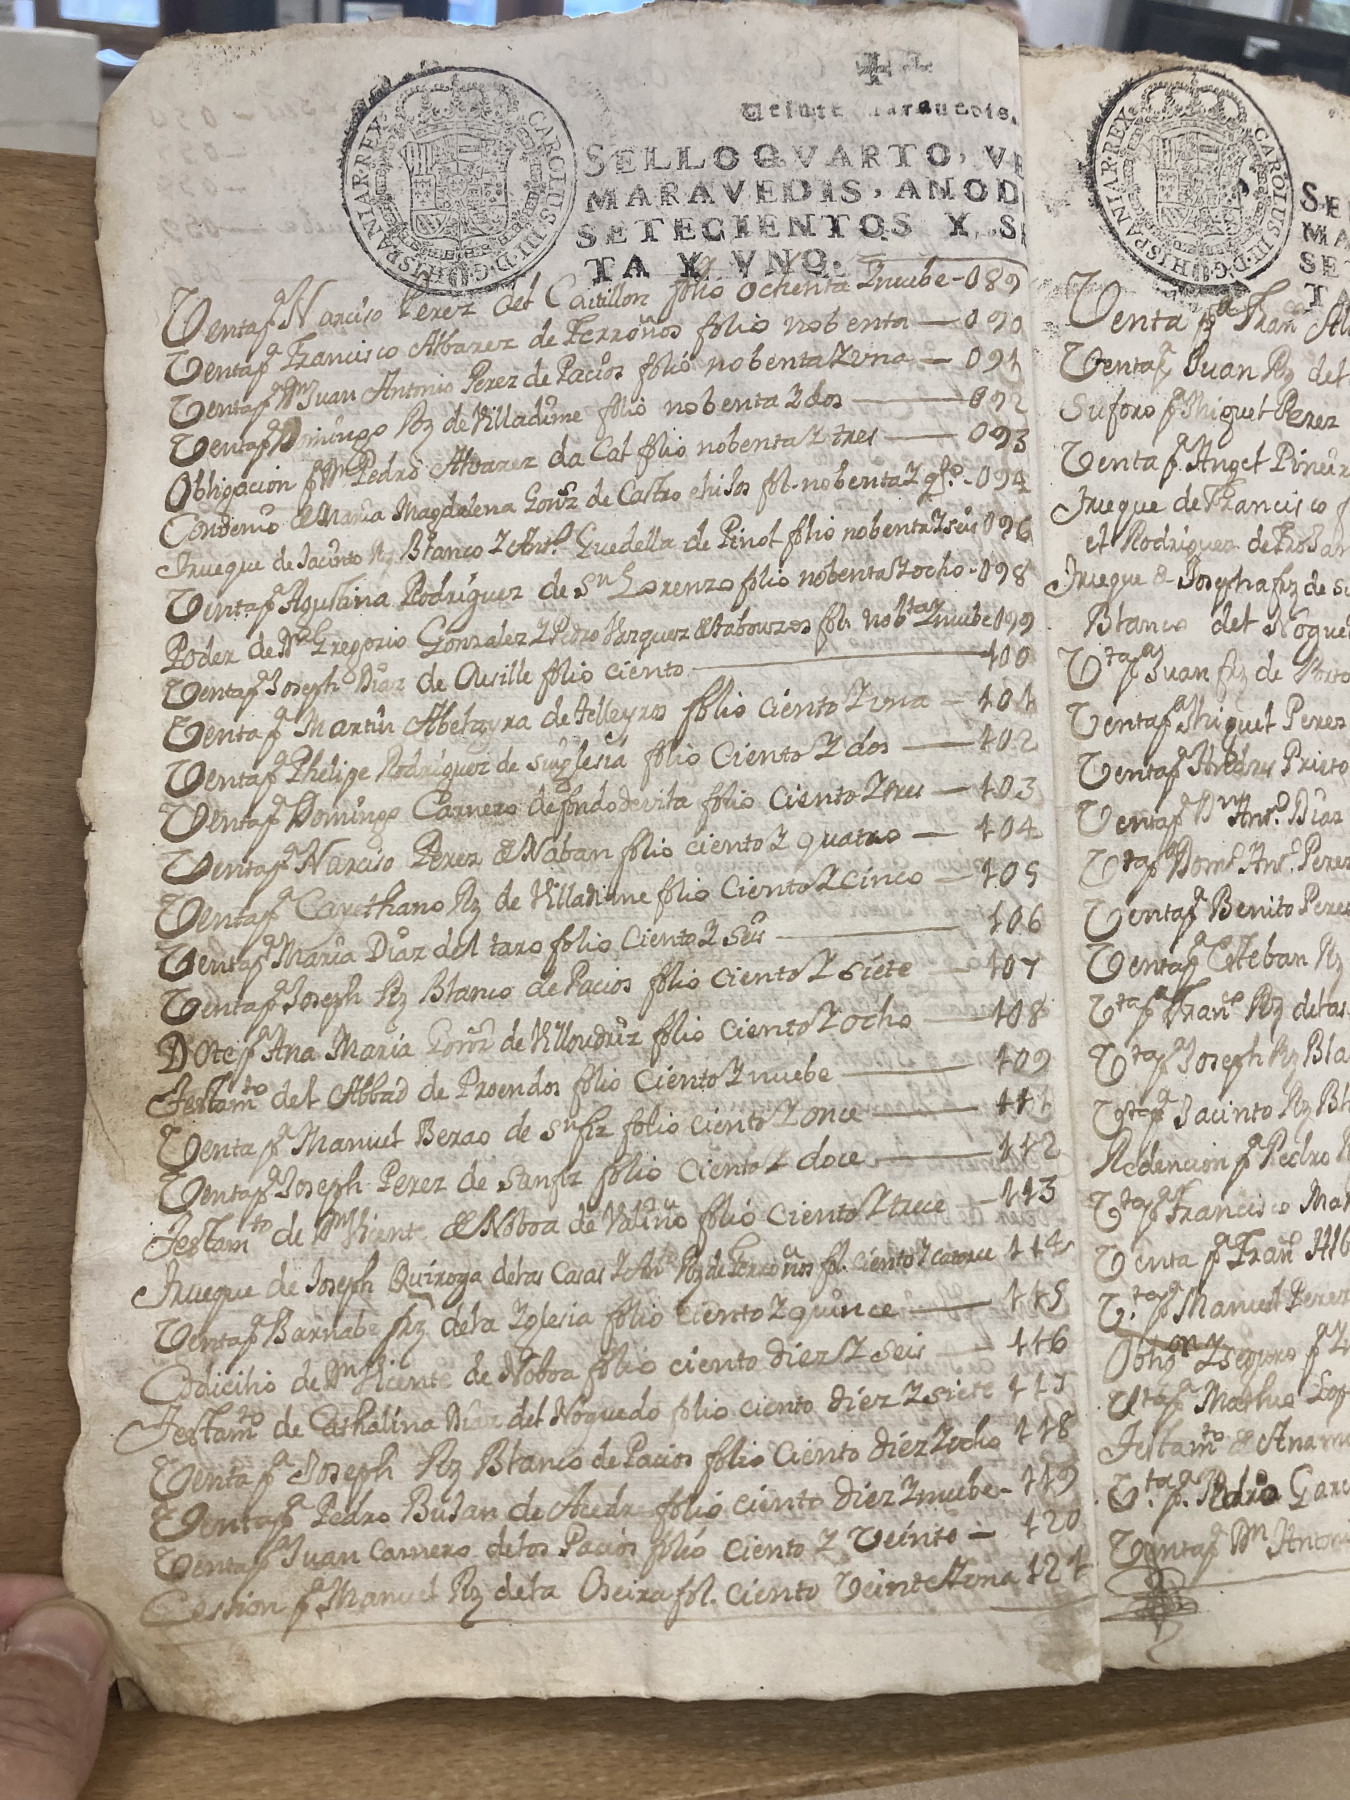 Veinte maravedis.
CAROLUS III D G HISPANIAR REX
SELLO QVARTO, VE
MARAVEDIS, AÑO D
SETECIENTOS Y S
TA Y VNO.
Venta pr Narciso Perez del Castillon folio ochenta Y nuebe - 089
Venta pr Francisco Albarez de Ferroños folio nobenta — 090
Venta pr Dn Juan Antonio Perez de Pacios folio nobenta Y una — 091
Venta pr Domingo Rz de Villadime folio nobenta Y dos — 092
Obligacion pr Dn Pedro Alvarez da Cal folio nobenta Y tres — 093
Maria Magdalena de Castro e hijos fol. nobenta Y qto. - 094
Trueque de Jacinto Rz Blanco Y Anto. Guedella de Pinol folio nobenta Y seis 096
Venta pr Agustina Rodriguez de Sn Lorenzo folio nobenta Y ocho - 098
Poder de Dn Gregorio Gonzalez Y Pedro Vazquez fol. nobta Y nuebe 099
Venta pr Joseph Diaz de folio ciento — 100
Venta pr Martin de folio ciento Y una — 101
Venta pr Phelipe Rodriguez de folio ciento Y dos — 102
Venta pr Domingo Carnero de fondodevila folio ciento Y tres — 103
Venta pr Narciso Perez de Naban folio ciento Y quatro — 104
Venta pr Rz de Villadime folio ciento Y cinco — 105
Venta pr Maria Diaz del taro folio ciento Y seis — 106
Venta pr Joseph Rz Blanco de Pacios folio ciento Y siete — 107
Dote pr Ana Maria de folio ciento Y ocho — 108
Testamto del Abbad de Proendos folio ciento Y nuebe — 109
Venta pr Manuel Berao de Snfiz folio ciento Y once — 111
Venta pr Joseph Perez de Sanfiz folio ciento Y doce — 112
Testamto de Dn Vicente de Noboa de folio ciento Y trece — 113
Trueque de Joseph Quiroga de las Casas Y Anto Rz de Ferroños fol. ciento Y catorce 114
Venta pr Barnabe frz de la Yglesia folio ciento Y quince — 115
Codicilio de Dn Vicente de Noboa folio ciento diez Y seis — 116
Testamto de Cathalina Diaz del Noguedo folio ciento diez Y siete 117
Venta pr Joseph Rz Blanco de Pacios folio ciento diez Y ocho 118
Venta pr Pedro Bujan de Acedre folio ciento diez Y nuebe - 119
Venta pr Juan Carnero de los Pacios folio ciento Y Veinte — 120
Cession pr Manuel Rz de la Oseira fol. ciento Veinte Y una 121
CAROLUS III D G HISPANIAR REX
SE
MA
SE
TA
Venta pr Fran
Venta pr Juan Rz del
Suforo pr Miguel Perez
Venta pr Angel
Trueque de Francisco
el Rodriguez de
Trueque de Josepha frz de
Blanco del Nogue
Vta pr Juan frz de
Venta pr Miguel Perez
Venta pr Andres Prieto
Venta pr Dn Anto. Diaz
Vta pr Domo Anto. Perez
Venta pr Benito Perez
Venta pr Esteban Rz
Vta pr Franco Rz de las
Vta pr Joseph Rz Bla
Vta pr Jacinto Rz Bl
Redencion pr Pedro
Vta pr Francisco
Venta pr Franco Alb
Vta pr Manuel Perez
Obligon Y seguro pr
Vta pr Matheo Lop
Testamto de Ana
Vta pr Pedro Garc
Venta pr Dn Antoni